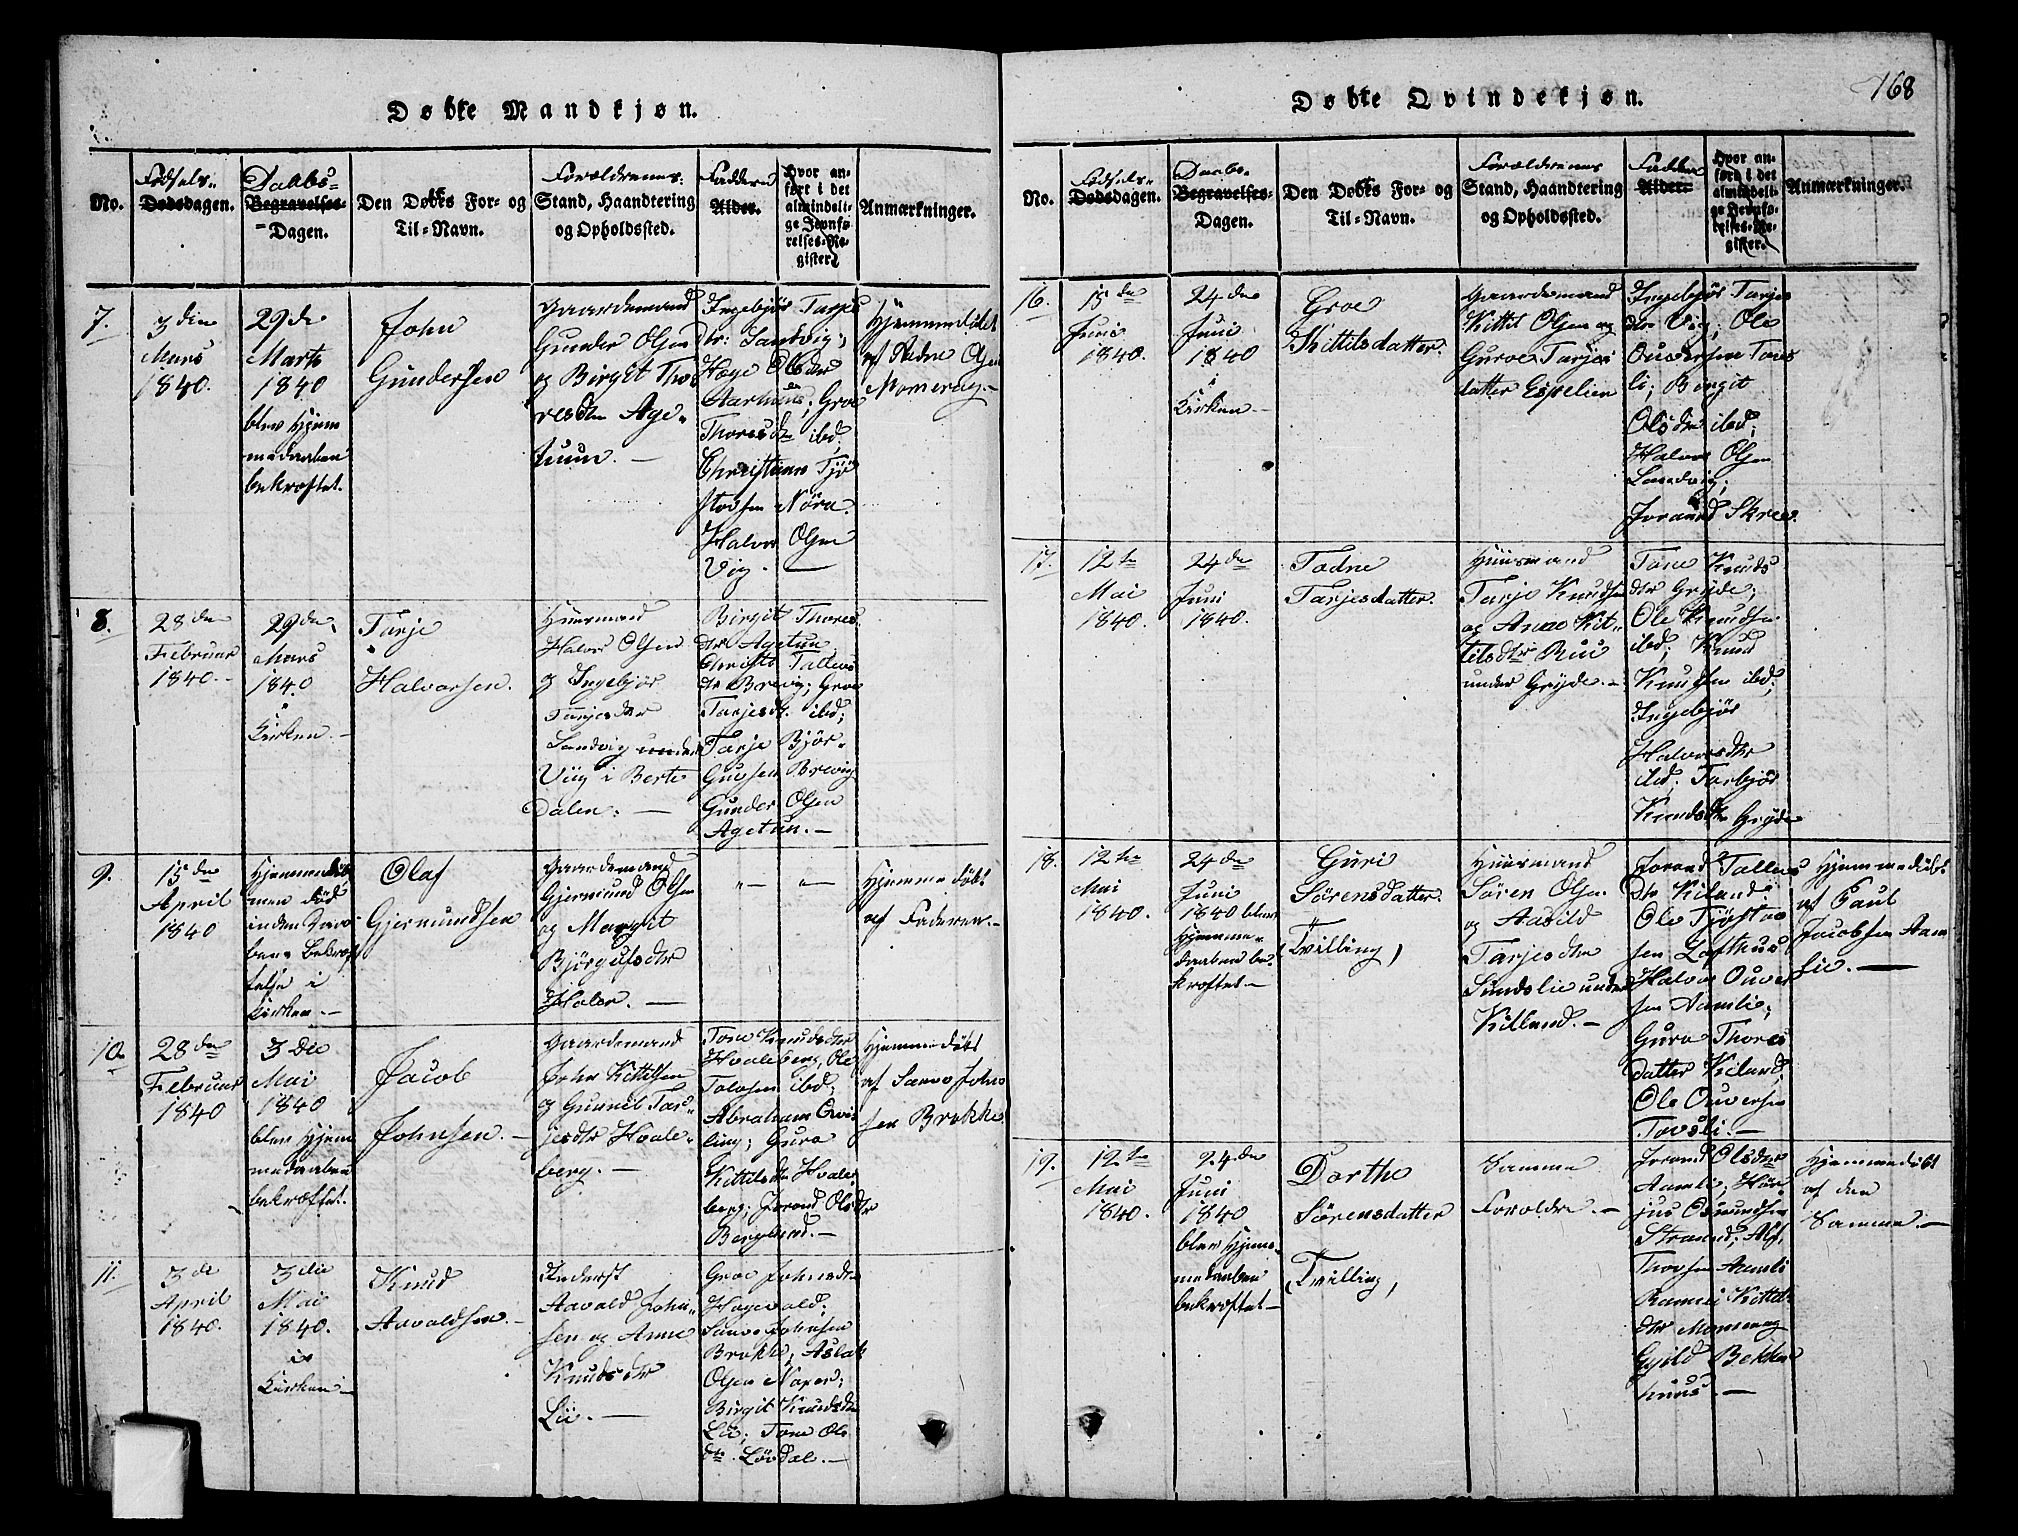 Døbte Mandkjøn.
No.
Fødsels-
Dødsdagen.
Daabs-
Begravelses-
Dagen.
Den Døbtes For- og
Til-Navn.
Forældrenes
Stand, Haandtering
og Opholdssted.
Faddere
Alder.
Hvor an-
ført i det
almindeli-
ge Jevnfø-
relses-Re-
gister.
Anmærkninger.
7.
3die
Mars
1840.
29de
Marts
1840
blev Hjem
medaaben
bekræftet.
John
Gundersen
Gaardemand
Gunder Olsen
og Birgit Tho
resdtr Age-
tuun. —
Ingebjør Tarjes
dtr: Sandvig;
Hæge Olsdtr
Aarhuus; Groe
Thoresdtr ibd;
Christian Tjø
stovsen Nóra.
Halvor Olsen
Vig. —
Hjemmedøbt
af Olsen
Momrag. —
8.
28de
Februar
1840. -
29de
Mars
1840
i
Kirken. —
Tarje
Halvorsen.
Huusmand
Halvor Olsen
og Ingebjør
Tarjesdtr
Sandvig under
Viig i Berte
Dalen. —
Birgit Thores
dtr Agetun
Christi Tallevs
dtr Brevig; Groe
Tarjesdt. ibd;
Tarje Bjør-
Brevig
Gunder Olsen
Agetun. —
9.
15de
April
1840
Hjemmedøbt
men død
inden Daa
bens Bekræf
telse i
Kirken. —
Olaf
Gjermundsen
Gaardemand
Gjermund Olsen
og Margit
Bjørgufsdtr
Haler. —
" — " —
Hjemmedøbt
af Faderen. —
10.
28de
Februar
1840
3die
Mai
1840
blev Hjem
medaaben
bekræftet.
Jacob
Johnsen. —
Gaardemand
John Kittilsen
og Gunnil Tar-
jesdtr Hvale-
berg. —
Tone Knudsdtr
Hvaleberg, Ole
Tolvsen ibd;
Abraham Qvis
ling; Guro
Kittilsdtr Hvale-
berg; Jorand Olsdtr
Berglund. —
Hjemmedøbt
af Sanvo John
sen Brokke
11.
3de
April
1840.
3die
Mai
1840.
i
Kirken. —
Knud
Aavaldsen. —
Inderst
Aavald John-
sen og Anne
Knudsdtr
Lii. —
Groe Johnsdtr
Hagevald;
Sanvo Johnsen
Brokke; Aslak
Olsen Noper;
Birgit Knudsdtr
Lii; Tone Ols
dtr Løvdal. —
Døbte Qvindekjøn.
168
No.
Fødsels-
Dødsdagen.
Daabs-
Begravelses-
Dagen.
Den Døbtes For- og
Til-Navn.
Forældrenes
Stand, Haandtering
og Opholdssted.
Faddere
Alder.
Hvor an-
ført i det
almindeli-
ge Jevnfø-
relses-Re-
gister.
Anmærkninger.
16.
15de
Juni
1840.
24de
Juni
1840
i
Kirken. —
Groe
Kittilsdatter.
Gaardemand
Kittil Olsen og
Guroe Tarjei
datter Espelien
Ingebjør Tarjes
dtr Vig; Ole
Ouversen Tovs
li; Birgit
Olsdtr ibd;
Halvor Olsen
Sandvig;
Jorand Skree.
17.
12te
Mai
1840.
24de
Juni
1840.
Todne
Tarjesdatter.
Huusmand
Tarje Knudsen
og Anne Kit-
tilsdtr Rui
under Gryde. —
Tone Knuds
dtr Gryde;
Ole Knudsen
ibd; Knud
Knudsen ibd;
Ingebjør
Halvorsdtr
ibd; Torbjør
Knudsdtr Gryde
18.
12te
Mai
1840.
24de
Juni
1840 blev
Hjemme-
daaben be-
kræftet —
Guri
Sørensdatter.
Tvilling,
Huusmand
Søren Olsen
og Aasild
Tarjesdtr
Sundslie under
Killand. —
Jorand Tallevs
dtr Kiland;
Ole Tjøstov
sen Lofthus
Halvor Ouver
sen Aamlie;
Guro Thores
datter Kiland;
Ole Ouversen
Tovsli. —
Hjemmedøbt
af Paul
Jacobsen Aam
lie. —
19.
12te
Mai
1840.
24de
Juni
1840
blev Hjem-
medaaben
bekræftet —
Dorthe
Sørensdatter
Tvilling,
Samme
Forældre. —
Jorand Olsdtr
Aamli; Hær-
jus Osmundsen
Strand; Alf
Thorsen Aamli
Kittils
dtr Momrag
Gjild Bekken
huus. —
Hjemmedøbt
af den
Samme. —